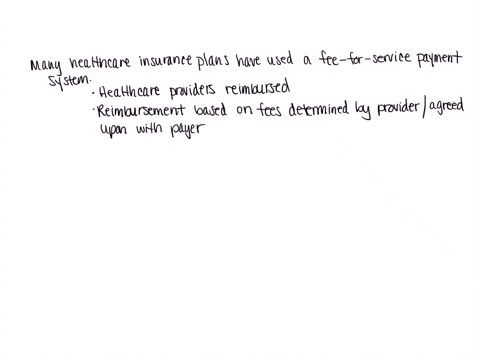 Many healthcare insurance plans have used a fee-for-service payment
system.
· Healthcare providers reimbursed
· Reimbursement based on fees determined by provider/agreed
upon with payer